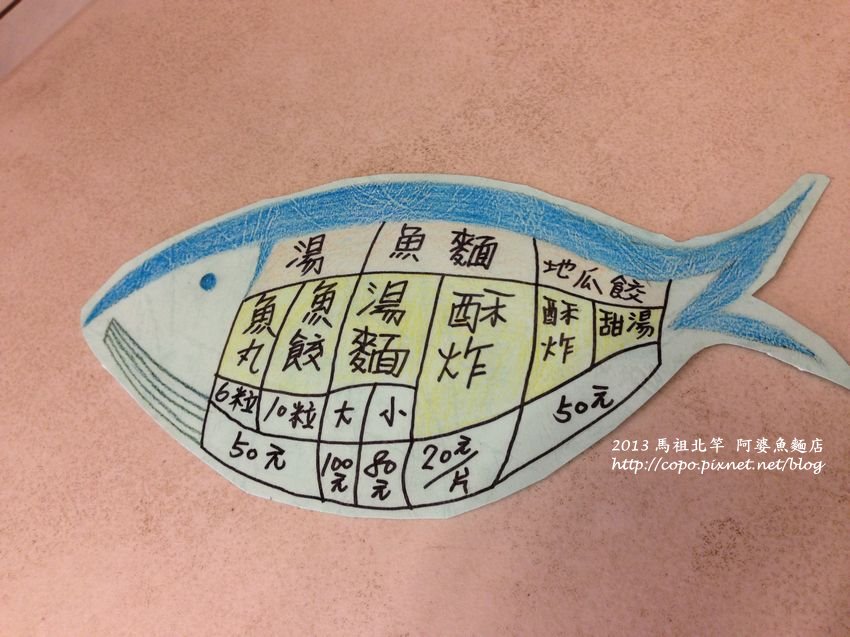 湯 魚麵 地瓜餃
魚丸 魚餃 湯麵 酥炸 酥炸 甜湯
6粒 10粒 大 小
50元 100元 80元 20元/片 50元
2013 馬祖北竿 阿婆魚麵店
http://copo.pixnet.net/blog